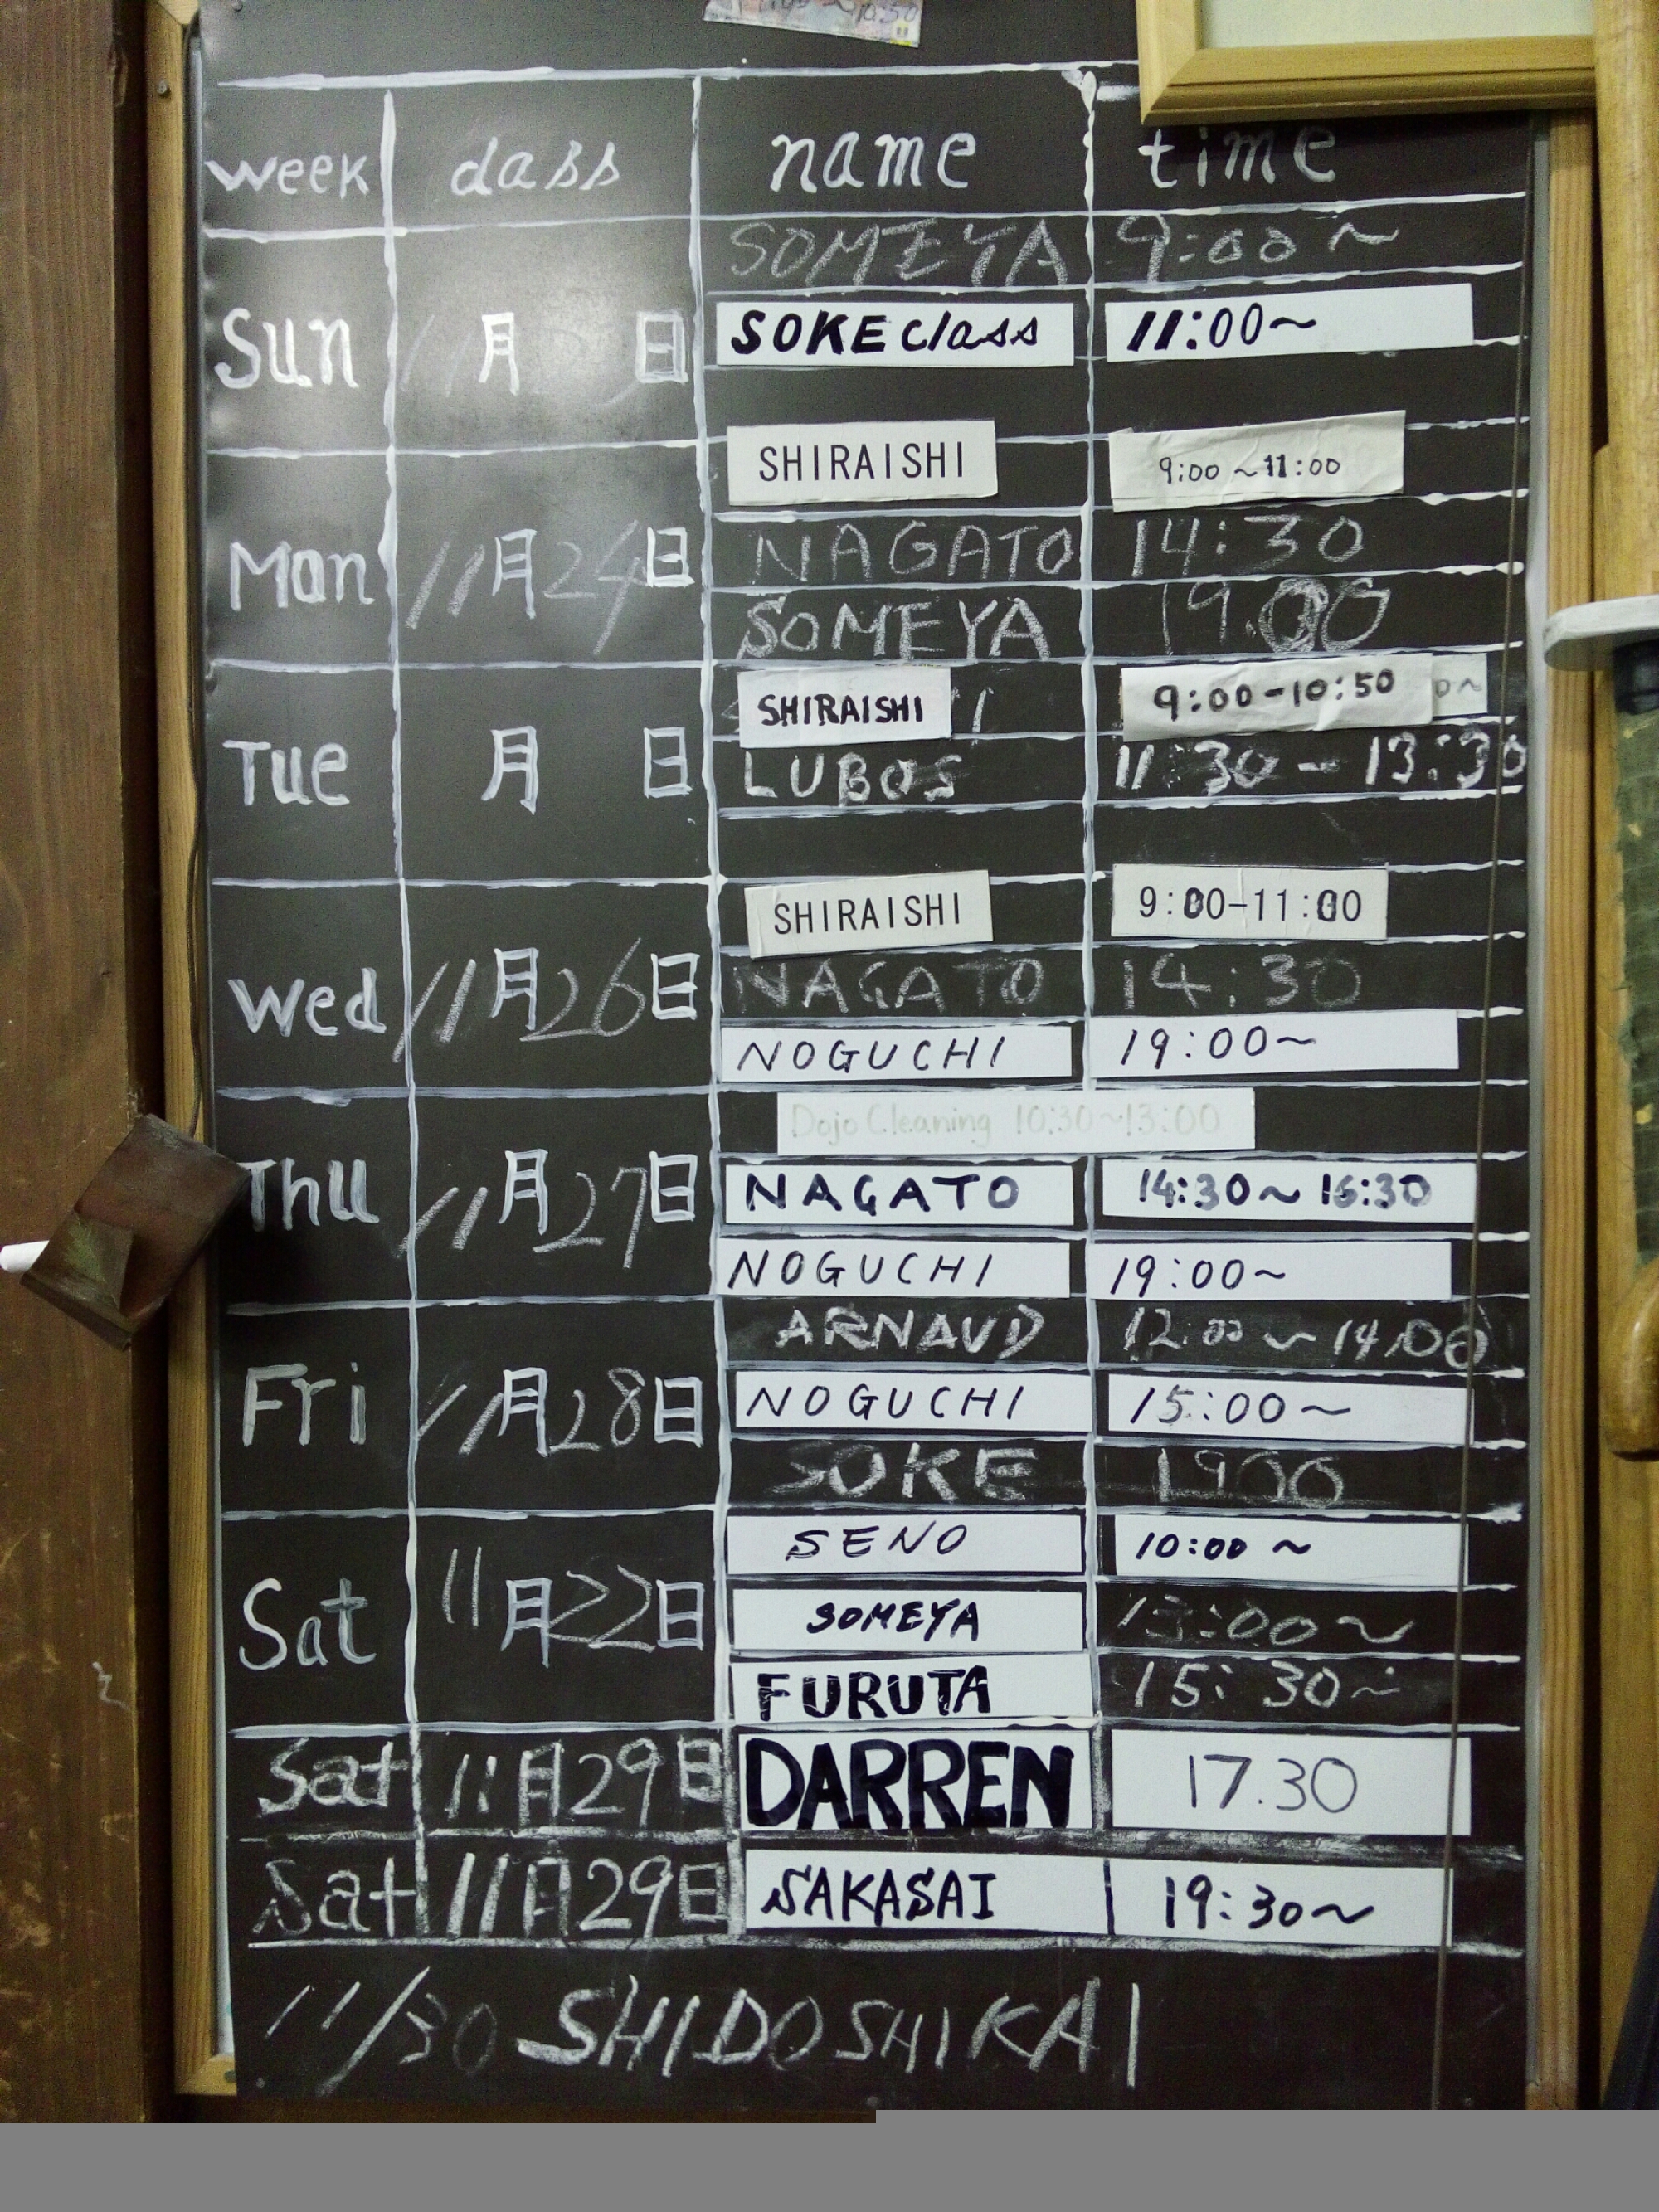 ~10:50
week class name time
SOMEYA 9:00~
Sun 月 日 SOKE class 11:00~
SHIRAISHI 9:00~11:00
Mon 11月24日 NAGATO 14:30
SOMEYA 19.00
SHIRAISHI 9:00-10:50
Tue 月 日 LUBOS 11:30-13:30
SHIRAISHI 9:00-11:00
Wed 11月26日 NAGATO 14:30
NOGUCHI 19:00~
Dojo Cleaning 10:30~13:00
Thu 11月27日 NAGATO 14:30~16:30
NOGUCHI 19:00~
ARNAUD 12:00~14:00
Fri 11月28日 NOGUCHI 15:00~
SOKE 1900
SENO 10:00~
Sat 11月22日 SOMEYA 13:00~
FURUTA 15:30~
Sat 11月29日 DARREN 17.30
Sat 11月29日 SAKASAI 19:30~
11/30 SHIDOSHIKAI